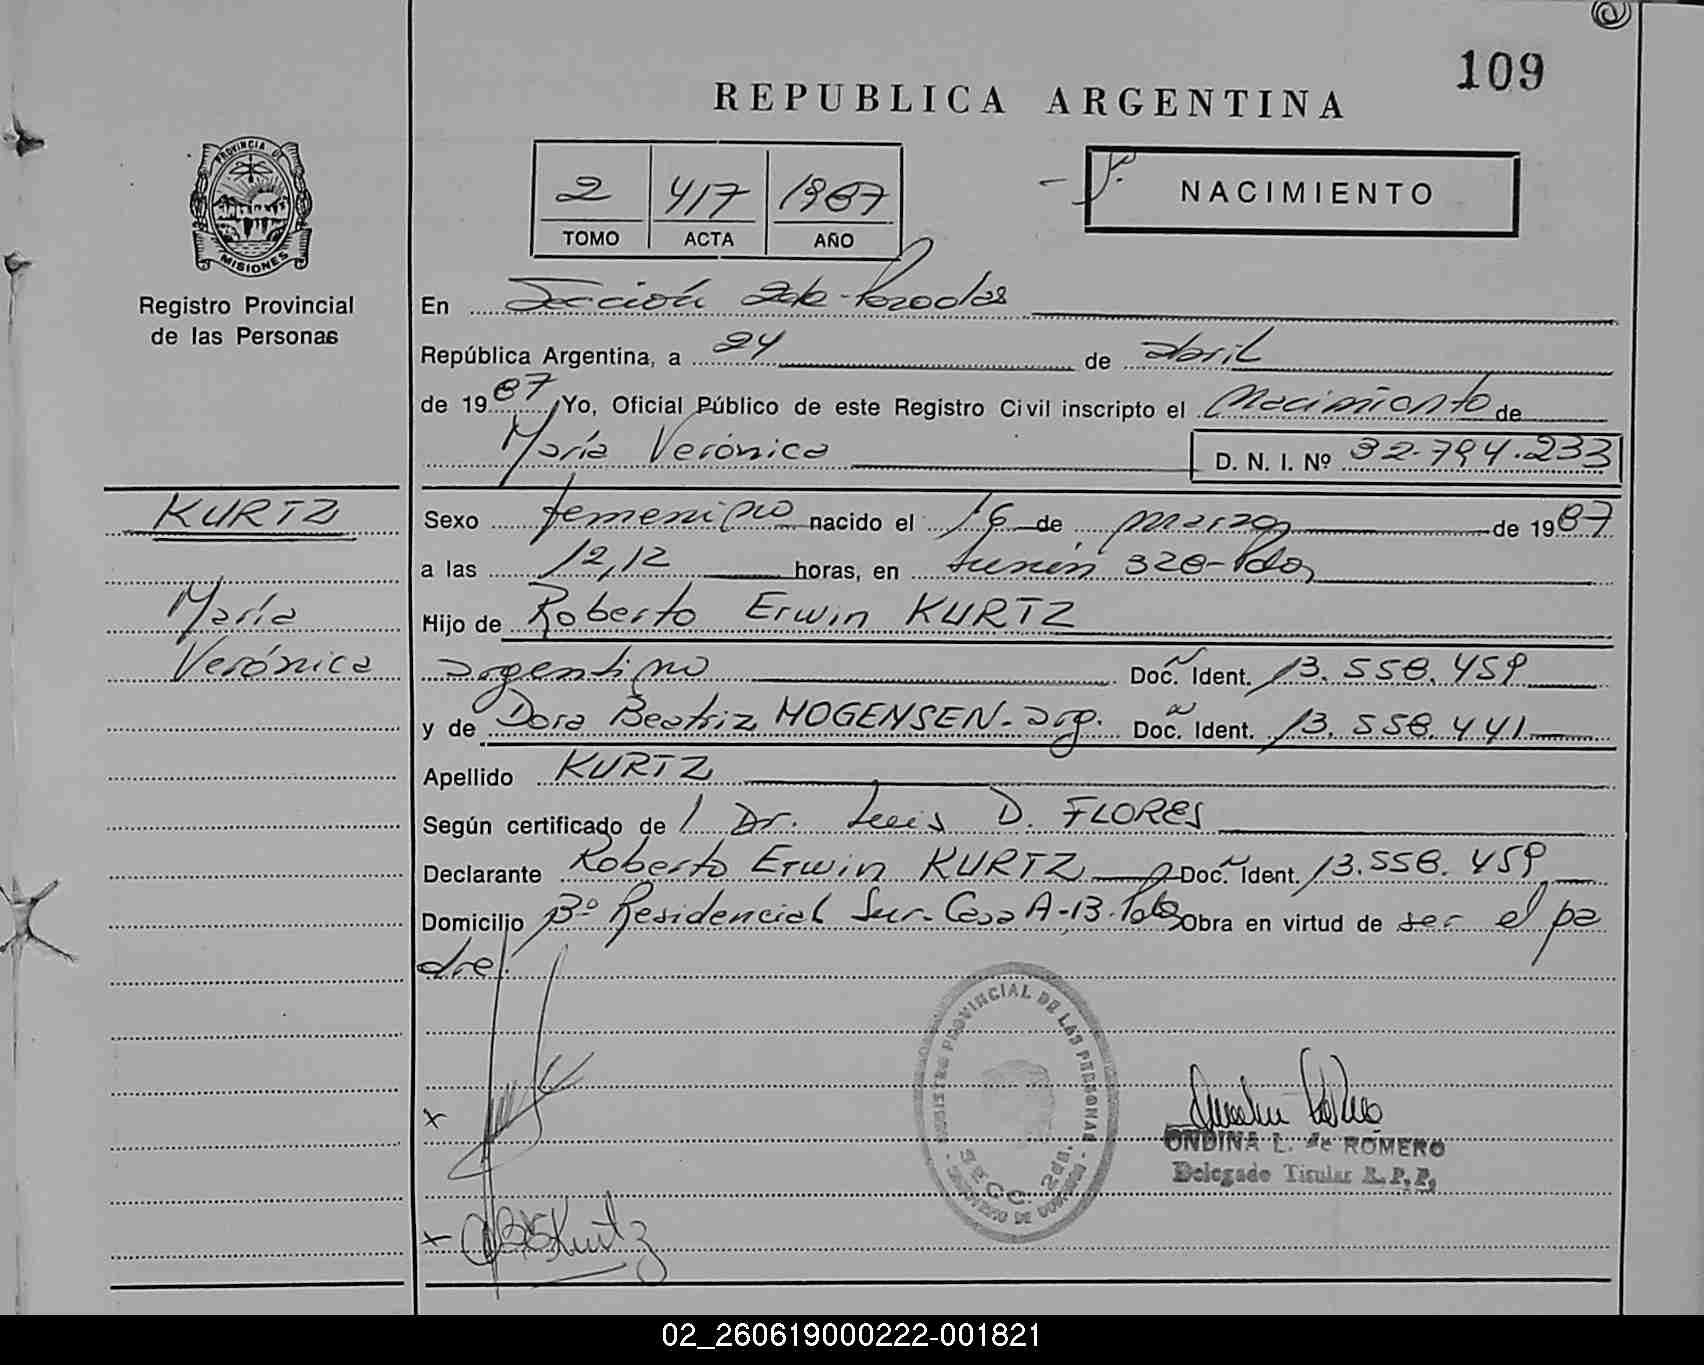 109
REPUBLICA ARGENTINA
PROVINCIA DE
MISIONES
Registro Provincial
de las Personas
2 417 1987
TOMO ACTA AÑO
NACIMIENTO
En Sección 2da - Posadas
República Argentina, a 24 de abril
de 1987 Yo, Oficial Público de este Registro Civil inscripto el Nacimiento de
María Verónica D. N. I. Nº 32.794.233
KURTZ
María
Verónica
Sexo femenino nacido el 16 de marzo de 1987
a las 12,12 horas, en Junín 328- Pdas
Hijo de Roberto Erwin KURTZ
argentino Doc. Ident. 13.558.459
y de Dora Beatriz MOGENSEN - arg. Doc. Ident. 13.558.441
Apellido KURTZ
Según certificado de l Dr. Luis D. FLORES
Declarante Roberto Erwin KURTZ Doc. Ident. 13.558.459
Domicilio Bº Residencial Sur- Casa A-13- Pdas Obra en virtud de ser el pa
dre.
REGISTRO PROVINCIAL DE LAS PERSONAS
SECC. 2da.
x
ONDINA L. de ROMERO
Delegado Titular R.P.P.
x Kurtz
02_260619000222-001821